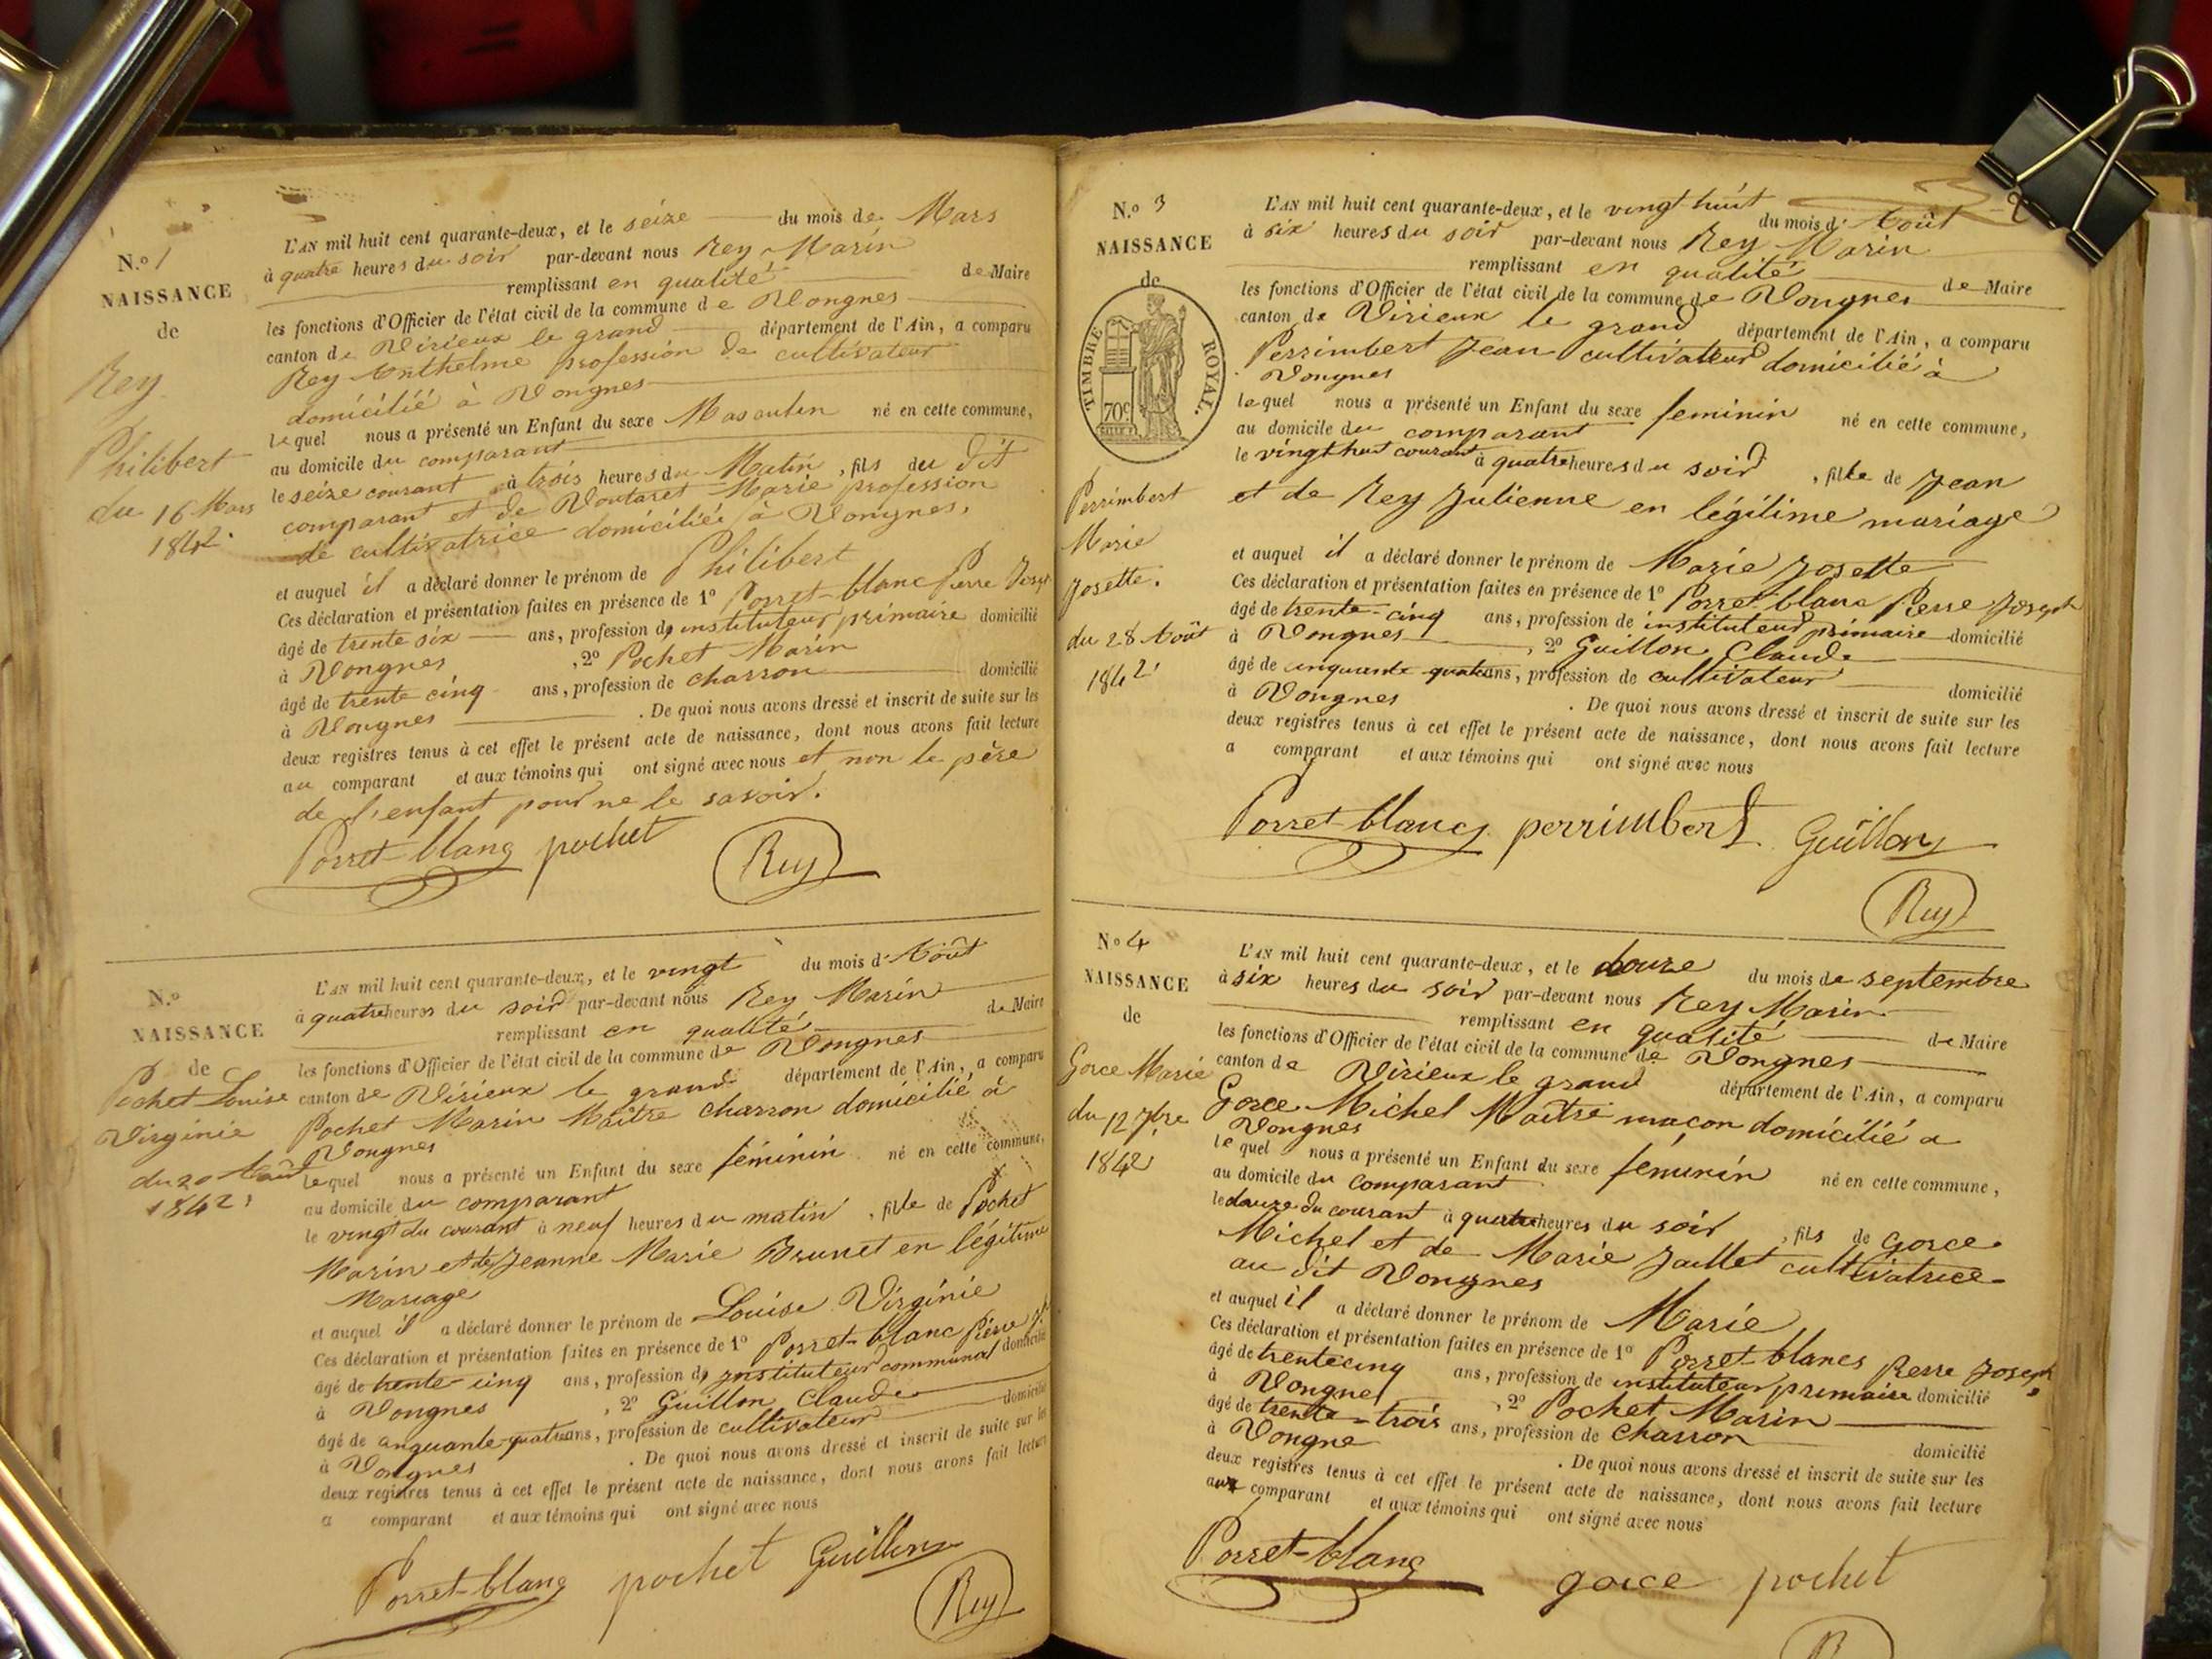 N.º 1
NAISSANCE
de
Rey
Philibert
du 16 Mars
1842.
L'AN mil huit cent quarante-deux, et le seize du mois de Mars
à quatre heures du soir par-devant nous Rey Marin
remplissant en qualité de Maire
les fonctions d'Officier de l'état civil de la commune de Vongnes
canton de Virieux le grand département de l'Ain, a comparu
Rey Anthelme profession de cultivateur
domicilié à Vongnes
lequel nous a présenté un Enfant du sexe Masculin né en cette commune,
au domicile du comparant
le seize courant à trois heures du Matin, fils du dit
comparant et de Voutaret Marie profession
de cultivatrice domiciliée à Vongnes,
et auquel il a déclaré donner le prénom de Philibert
Ces déclaration et présentation faites en présence de 1º Porret-blanc Pierre Joseph
âgé de trente six ans, profession de instituteur primaire domicilié
à Vongnes, 2º Pochet Marin
âgé de trente cinq ans, profession de charron domicilié
à Vongnes. De quoi nous avons dressé et inscrit de suite sur les
deux registres tenus à cet effet le présent acte de naissance, dont nous avons fait lecture
au comparant et aux témoins qui ont signé avec nous et non le père
de l'enfant pour ne le savoir.
Porret-blanc pochet Rey
N.º
NAISSANCE
de
Pochet Louise
Virginie
du 20 Août
1842.
L'AN mil huit cent quarante-deux, et le vingt du mois d'Août
à quatre heures du soir par-devant nous Rey Marin
remplissant en qualité de Maire
les fonctions d'Officier de l'état civil de la commune de Vongnes
canton de Virieux le grand département de l'Ain, a comparu
Pochet Marin Maître charron domicilié à
Vongnes
lequel nous a présenté un Enfant du sexe féminin né en cette commune,
au domicile du comparant
le vingt du courant à neuf heures du matin, fille de Pochet
Marin et de Jeanne Marie Brunet en légitime
Mariage
et auquel il a déclaré donner le prénom de Louise Virginie
Ces déclaration et présentation faites en présence de 1º Porret-blanc Pierre Jph
âgé de trente-cinq ans, profession de instituteur communal domicilié
à Vongnes, 2º Guillon Claude
âgé de cinquante-quatre ans, profession de cultivateur domicilié
à Vongnes. De quoi nous avons dressé et inscrit de suite sur les
deux registres tenus à cet effet le présent acte de naissance, dont nous avons fait lecture
a comparant et aux témoins qui ont signé avec nous
Porret-blanc pochet Guillon
Rey
N.º 3
NAISSANCE
de
TIMBRE ROYAL.
70c
Perrimbert
Marie
Josette.
du 28 Août
1842
L'AN mil huit cent quarante-deux, et le vingt-huit du mois d'Août
à six heures du soir par-devant nous Rey Marin
remplissant en qualité de Maire
les fonctions d'Officier de l'état civil de la commune de Vongnes
canton de Virieux le grand département de l'Ain, a comparu
Perrimbert Jean cultivateur domicilié à
Vongnes
lequel nous a présenté un Enfant du sexe feminin né en cette commune,
au domicile du comparant
le vingt huit courant à quatre heures du soir, fille de Jean
et de Rey Julienne en légitime mariage
et auquel il a déclaré donner le prénom de Marie Josette
Ces déclaration et présentation faites en présence de 1º Porret-blanc Pierre Joseph
âgé de trente-cinq ans, profession de instituteur primaire domicilié
à Vongnes, 2º Guillon Claude
âgé de cinquante quatre ans, profession de cultivateur domicilié
à Vongnes. De quoi nous avons dressé et inscrit de suite sur les
deux registres tenus à cet effet le présent acte de naissance, dont nous avons fait lecture
a comparant et aux témoins qui ont signé avec nous
Porret-blanc perrimbert Guillon
Rey
Nº 4
NAISSANCE
de
Gorce Marie
du 12 7bre
1842
L'AN mil huit cent quarante-deux, et le douze du mois de septembre
à six heures du soir par-devant nous Rey Marin
remplissant en qualité de Maire
les fonctions d'Officier de l'état civil de la commune de Vongnes
canton de Virieux le grand département de l'Ain, a comparu
Gorce Michel Maître maçon domicilié a
Vongnes
lequel nous a présenté un Enfant du sexe féminin né en cette commune,
au domicile du comparant
le douze du courant à quatre heures du soir, fils de Gorce
Michel et de Marie Jaillet cultivatrice
au dit Vongnes
et auquel il a déclaré donner le prénom de Marie
Ces déclaration et présentation faites en présence de 1º Porret-blanc Pierre Joseph
âgé de trente cinq ans, profession de instituteur primaire domicilié
à Vongnes, 2º Pochet Marin
âgé de trente-trois ans, profession de charron domicilié
à Vongne. De quoi nous avons dressé et inscrit de suite sur les
deux registres tenus à cet effet le présent acte de naissance, dont nous avons fait lecture
aux comparant et aux témoins qui ont signé avec nous
Porret-blanc gorce pochet